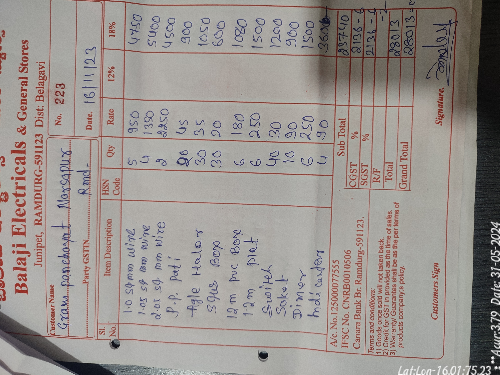 Balaji Electricals & General Stores
Junipet, RAMDURG-591123 Dist: Belagavi
Customer Name
Gram panchayat
No. 223
Party GSTIN Rmd-
Date. 16/11/23
Sl. No. Item Description HSN Code Qty Rate 12% 18%
1.0 sq mm wire 5 950 4750
1.05 sq mm wire 4 1350 5400
2.05 sq mm wire 2 2250 4500
P.P. Pati 20 45 900
Agle Holdor 30 35 1050
20 600
12 m pvc Box 6 180 1080
12 m plet 6 250 1500
Switch 40 30 1200
Soket 10 90 900
Dimer 6 250 1500
Indicator 4 90
A/c.No.125000077555
IFSC No. CNRB0010606
Canara Bank Br. Ramdurg-591123.
Sub Total 23740
CGST %
SGST % 2136-
R/F
Total 28013
Grand Total 28013=
Terms and conditions:
1) Goods once sold will not taken back.
2) Check for GST in provided as the time of sales.
3) Warranty Guaranties will be as the per terms of
products company's policy.
Customers Sign
Signature.
31-05-2024
Lat:Lon-16.01:75.23